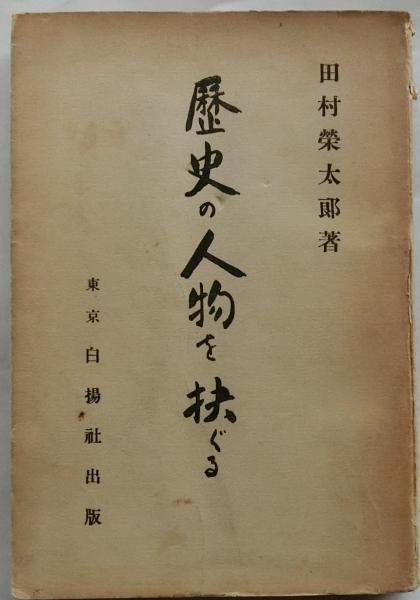 田村榮太郎著
歴史の人物を抉ぐる
東京 白揚社出版